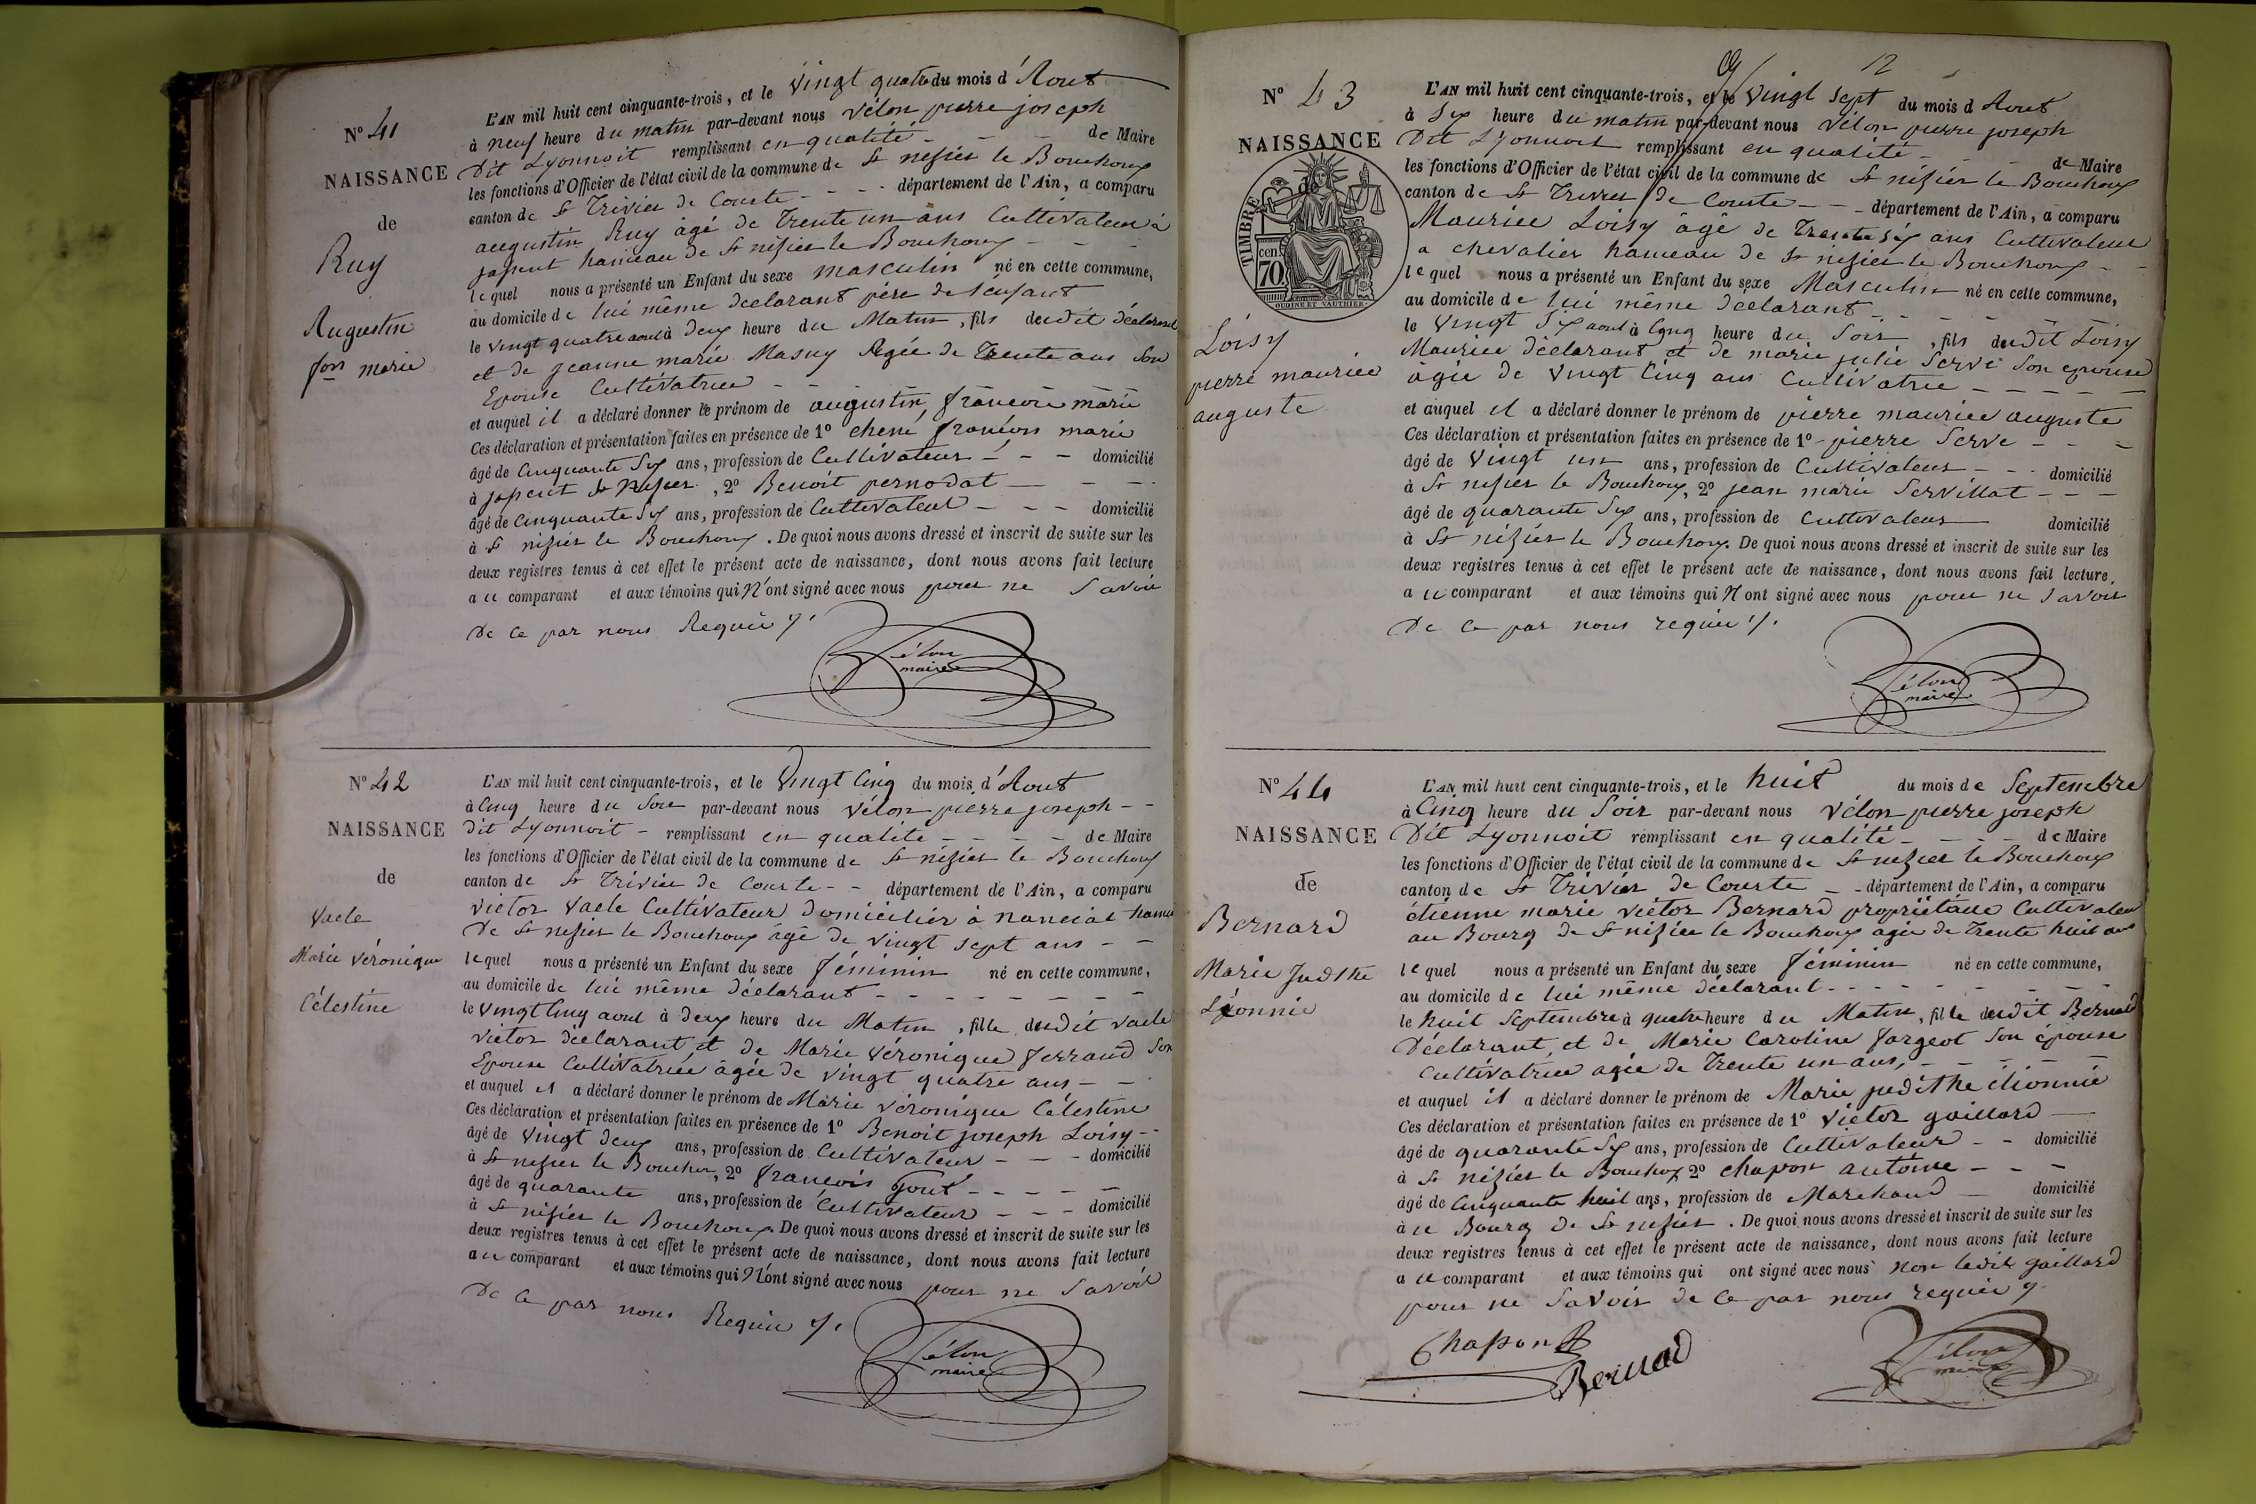 N° 41
NAISSANCE
de
Ruy
Augustin
fois marie
L'AN mil huit cent cinquante-trois, et le Vingt quatre du mois d'Aout
à neuf heure du matin par-devant nous Vélon pierre joseph
Dit Lyonnoit remplissant en qualité - - - de Maire
les fonctions d'Officier de l'état civil de la commune de St nizier le Bouchoux
canton de St Trivier de Courte - - - département de l'Ain, a comparu
augustin Ruy âgé de trente un ans Cultivateur à
hameau de St nizier le Bouchoux - - -
lequel nous a présenté un Enfant du sexe masculin né en cette commune,
au domicile de lui même déclarant père de l'enfant
le vingt quatre aout à deux heure du Matin, fils dudit déclarant
et de jeanne marie Masuy Agée de Trente ans Son
Epouse Cultivatrice - -
et auquel il a déclaré donner le prénom de augustin, françois marie
Ces déclaration et présentation faites en présence de 1° chené françois marie
âgé de Cinquante Six ans, profession de Cultivateur - - - domicilié
à St Nizier, 2° Benoit pernodat - - -
âgé de Cinquante Six ans, profession de Cultivateur - - - domicilié
à St nizier le Bouchoux. De quoi nous avons dressé et inscrit de suite sur les
deux registres tenus à cet effet le présent acte de naissance, dont nous avons fait lecture
au comparant et aux témoins qui N'ont signé avec nous pour ne Savoir
De ce par nous Requis ./.
Vélon
maire
N° 42
NAISSANCE
de
Vacle
Marie Véronique
Célestine
L'AN mil huit cent cinquante-trois, et le Vingt Cinq du mois d'Aout
à Cinq heure du Soir par-devant nous Vélon pierre joseph - -
dit Lyonnoit - remplissant en qualité - - - - de Maire
les fonctions d'Officier de l'état civil de la commune de St nizier le Bouchoux
canton de St Trivier de Courte - - département de l'Ain, a comparu
victor Vacle Cultivateur Domicilier à nancial hameau
De St nizier le Bouchoux âgé de vingt sept ans - -
lequel nous a présenté un Enfant du sexe féminin né en cette commune,
au domicile de lui même déclarant - - - - - - -
le Vingt Cinq aout à deux heure du Matin, fille dudit Vacle
Victor déclarant et de Marie Véronique ferrand Son
Epouse Cultivatrice âgée de vingt quatre ans - -
et auquel il a déclaré donner le prénom de Marie Véronique Célestine
Ces déclaration et présentation faites en présence de 1° Benoit joseph Loisy - -
âgé de vingt deux ans, profession de Cultivateur - - - domicilié
à St nizier le Bouchoux, 2° françois - - - - -
âgé de quarante ans, profession de Cultivateur - - - domicilié
à St nizier le Bouchoux. De quoi nous avons dressé et inscrit de suite sur les
deux registres tenus à cet effet le présent acte de naissance, dont nous avons fait lecture
au comparant et aux témoins qui N'ont signé avec nous pour ne Savoir
De ce par nous Requis ./.
Vélon
maire
12
N° 43
NAISSANCE
de
TIMBRE
70 cen.
OUDINE ET VAUTHIER
Loisy
pierre maurice
auguste
L'AN mil huit cent cinquante-trois, et le Vingt Sept du mois d Aout
à Six heure du matin par-devant nous Vélon pierre joseph
Dit Lyonnoit remplissant en qualité - - - de Maire
les fonctions d'Officier de l'état civil de la commune de St nizier le Bouchoux
canton de St Trivier de Courte - - - département de l'Ain, a comparu
Maurice Loisy âgé de Trente Six ans Cultivateur
a chevalier hameau de St nizier le Bouchoux - -
lequel nous a présenté un Enfant du sexe Masculin né en cette commune,
au domicile de lui même déclarant - - - - -
le Vingt Six aout à Cinq heure du Soir, fils dudit Loisy
Maurice déclarant et de marie julie Serve Son epouse
âgée de Vingt Cinq ans Cultivatrice - - - - -
et auquel il a déclaré donner le prénom de pierre maurice auguste
Ces déclaration et présentation faites en présence de 1° pierre Serve - - -
âgé de Vingt un ans, profession de Cultivateur - - - domicilié
à St nizier le Bouchoux, 2° jean marie Servillat - - -
âgé de quarante Six ans, profession de Cultivateur domicilié
à St nizier le Bouchoux. De quoi nous avons dressé et inscrit de suite sur les
deux registres tenus à cet effet le présent acte de naissance, dont nous avons fait lecture
au comparant et aux témoins qui N ont signé avec nous pour ne Savoir
De ce par nous requis ./.
Vélon
maire
N° 44
NAISSANCE
de
Bernard
Marie Judithe
Léonnie
L'AN mil huit cent cinquante-trois, et le huit du mois de Septembre
à Cinq heure du Soir par-devant nous Vélon pierre joseph
Dit Lyonnoit remplissant en qualité - - - de Maire
les fonctions d'Officier de l'état civil de la commune de St nizier le Bouchoux
canton de St Trivier de Courte - - département de l'Ain, a comparu
étienne marie victor Bernard propriétaire Cultivateur
au Bourg de St nizier le Bouchoux agée de Trente huit ans
lequel nous a présenté un Enfant du sexe féminin né en cette commune,
au domicile de lui même déclarant - - - - - - -
le huit Septembre à quatre heure du Matin, fille dudit Bernard
Déclarant, et de Marie Caroline fargeot Son épouse
Cultivatrice agée de Trente un ans, - - - - -
et auquel il a déclaré donner le prénom de Marie judithe élionnie
Ces déclaration et présentation faites en présence de 1° Victor gaillard -
âgé de quarante Six ans, profession de Cultivateur - - domicilié
à St nizier le Bouchoux, 2° chapon antoine - - -
âgé de Cinquante huit ans, profession de Marchand - domicilié
à u Bourg De St nizier. De quoi nous avons dressé et inscrit de suite sur les
deux registres tenus à cet effet le présent acte de naissance, dont nous avons fait lecture
au comparant et aux témoins qui ont signé avec nous non ledit gaillard
pour ne Savoir de ce par nous requis ./.
Chapon
Bernard
Vélon
maire